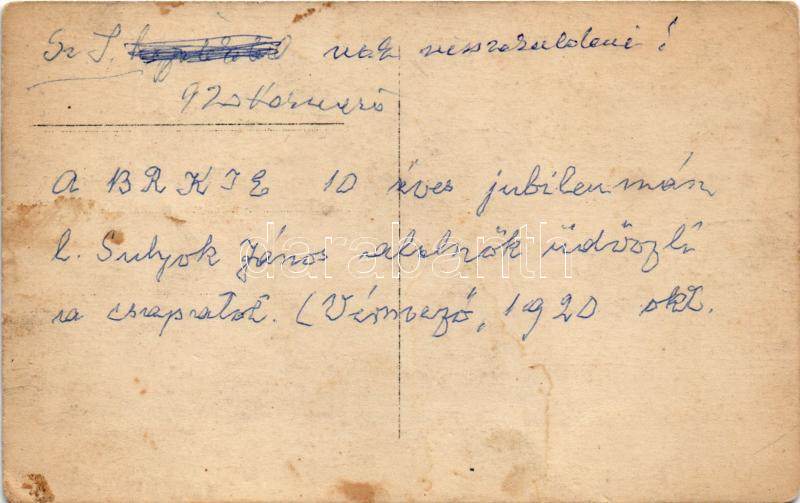 Sz. J. nak visszaküldeni!
A BRKIE 10 éves jubileumán
l. Sulyok János alelnök üdvözli
a csapatot. (Vérmező, 1920 okt.
darabanth